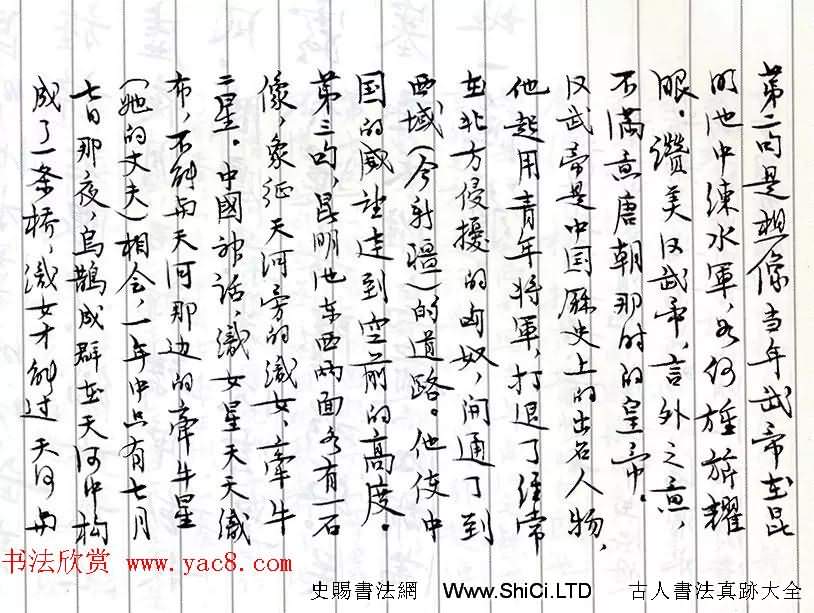 第二句是想像当年武帝在昆
明池中练水軍，如何旌旂耀
眼。讚美汉武帝，言外之意，
不满意唐朝那时的皇帝。
汉武帝是中国厯史上的出名人物，
他起用青年将軍，打退了经常
在北方侵擾的匈奴，开通了到
西域（今新疆）的道路。他使中
国的威望达到空前的高度。
第三句，昆明池东西两面各有一石
像，象征天河旁的織女、牽牛
二星。中國神话，織女星天天織
布，不能与天河那边的牽牛星
（她的丈夫）相会，一年中只有七月
七日那夜，烏鵲成群在天河中构
成了一条桥，織女才能过天河与
书法欣赏 www.yac8.com
史賜書法網 Www.ShiCi.LTD 古人書法真跡大全